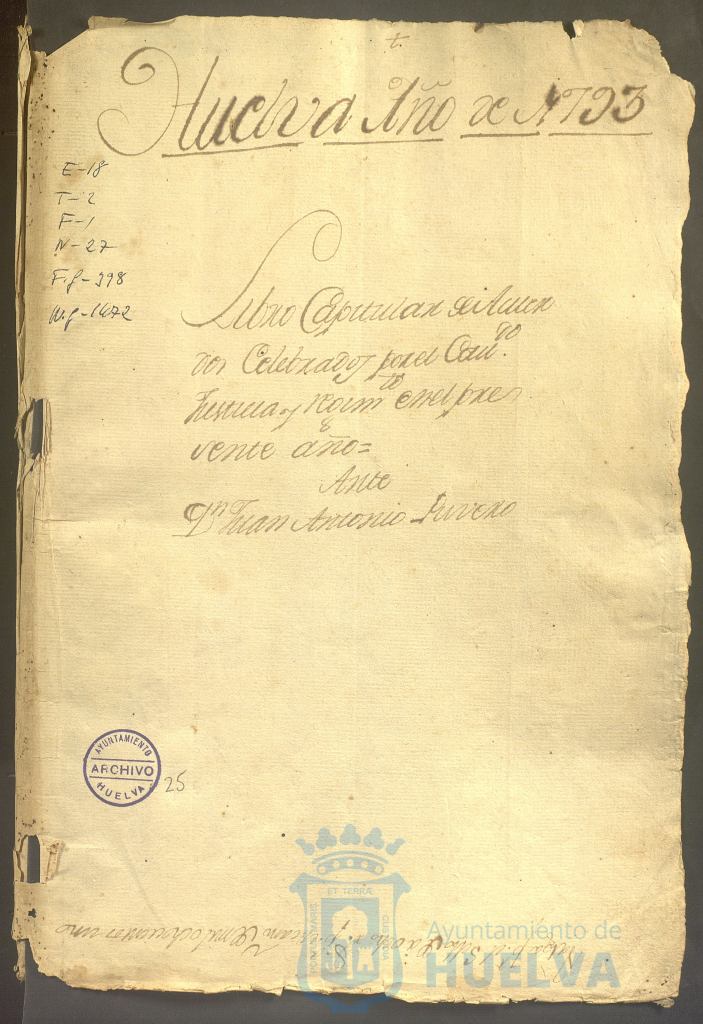 +
Huelva Año de 1793
E-18
T-2
F-1
N-27
F.g-398
N.g-1472
Libro Capitular de Acuer
dos Celebrados por el Con.
Justicia y Regim.to en el pre
sente año=
Ante
Dn Juan Antonio Rivero
AYUNTAMIENTO
ARCHIVO
HUELVA
25
ET TERRÆ
Ayuntamiento de
HUELVA